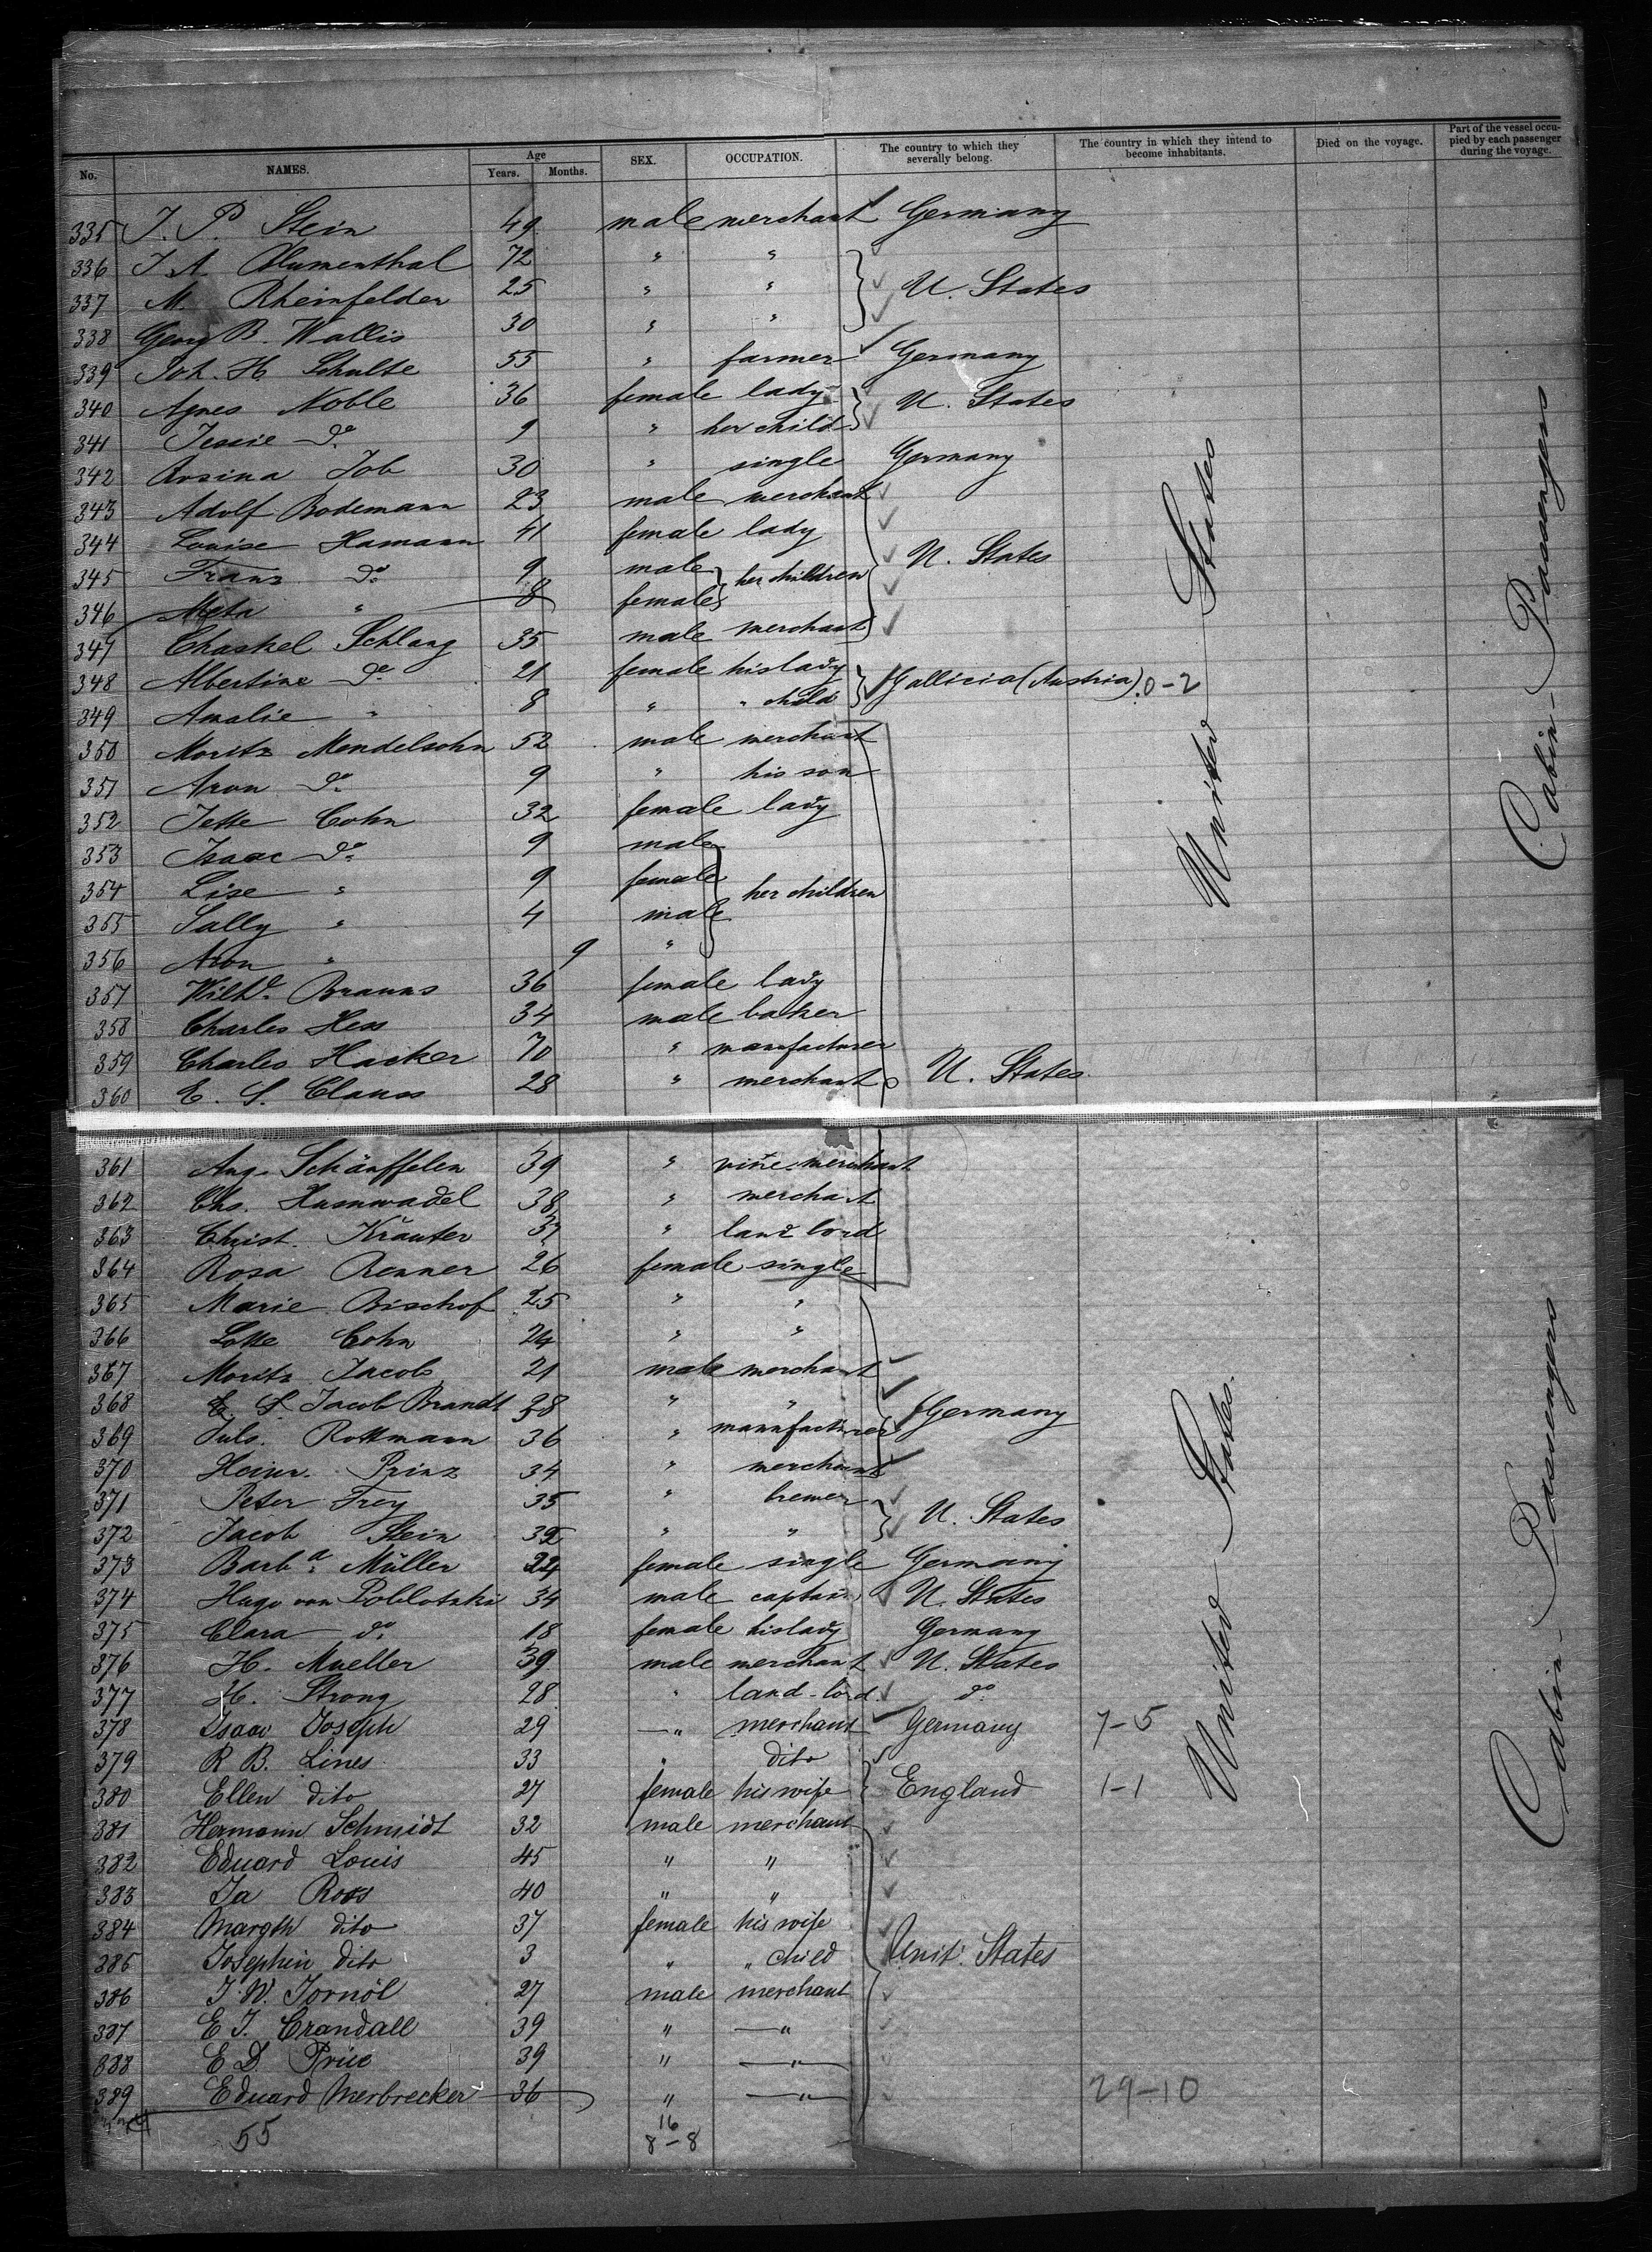 No. NAMES. Age Years. Months. SEX. OCCUPATION. The country to which they severally belong. The country in which they intend to become inhabitants. Died on the voyage. Part of the vessel occupied by each passenger during the voyage.
335 J. P. Stein 49 male merchant Germany
336 J. A. Blumenthal 72 " "
337 M. Rheinfelder 25 " " U. States
338 Georg B. Wallis 30 " "
339 Joh. H. Schulte 55 " farmer Germany
340 Agnes Noble 36 female lady U. States
341 Jessie do 9 " her child
342 Rosina Job 30 " single Germany
343 Adolf Bodemann 23 male merchant
344 Louise Hamann 41 female lady
345 Franz do 9 male her children U. States
346 Meta " 8 female
347 Chaskel Schlang 35 male merchant
348 Albertine do 21 female his lady Gallicia (Austria). 0-2
349 Amalie " 8 " " child
350 Moritz Mendelsohn 52 male merchant
351 Aron do 9 " his son
352 Jette Cohn 32 female lady
353 Isaac do 9 male
354 Lise " 9 female her children
355 Sally " 4 male
356 Aron " 9 "
357 Wilhe. Brauns 36 female lady
358 Charles Hess 34 male baker
359 Charles Hacker 70 " manufacturer
360 E. S. Clauss 28 " merchant U. States
361 Aug. Schäuffelen 39 " vine merchant
362 Chs. 38 " merchant
363 Christ. Kräuter 37 " land lord
364 Rosa Renner 26 female single
365 Marie Bischof 25 " "
366 Lotte Cohn 24 " "
367 Moritz Jacob 21 male merchant
368 Jacob Brandt 38 " " Germany
369 Juls. Rottmann 36 " manufacturer
370 Heinr. Prinz 34 " merchant
371 Peter Frey 35 " brewer U. States
372 Jacob Stein " "
373 Barba. Müller 24 female single Germany
374 Hugo von Poblotzki 34 male captain U. States
375 Clara do 18 female his lady Germany
376 H. Mueller 39 male merchant U. States
377 H. Strong 28 " land-lord do
378 Isaac Joseph 29 " merchant Germany 7-5
379 R B. Lines 33 " dito
380 Ellen dito 27 female his wife England 1-1
381 Hermann Schmidt 32 male merchant
382 Eduard Louis 45 " "
383 Ja Ross 40 " "
384 Margth dito 37 female his wife
385 Josephin dito 3 " " child Unit. States
386 J. W. 27 male merchant
387 E J. Crandall 39 " "
388 E D. Price 39 " "
389 Eduard Merbrecker 36 " " 29-10
55 16
8-8
United States
Cabin-Passengers
United States.
Cabin-Passengers